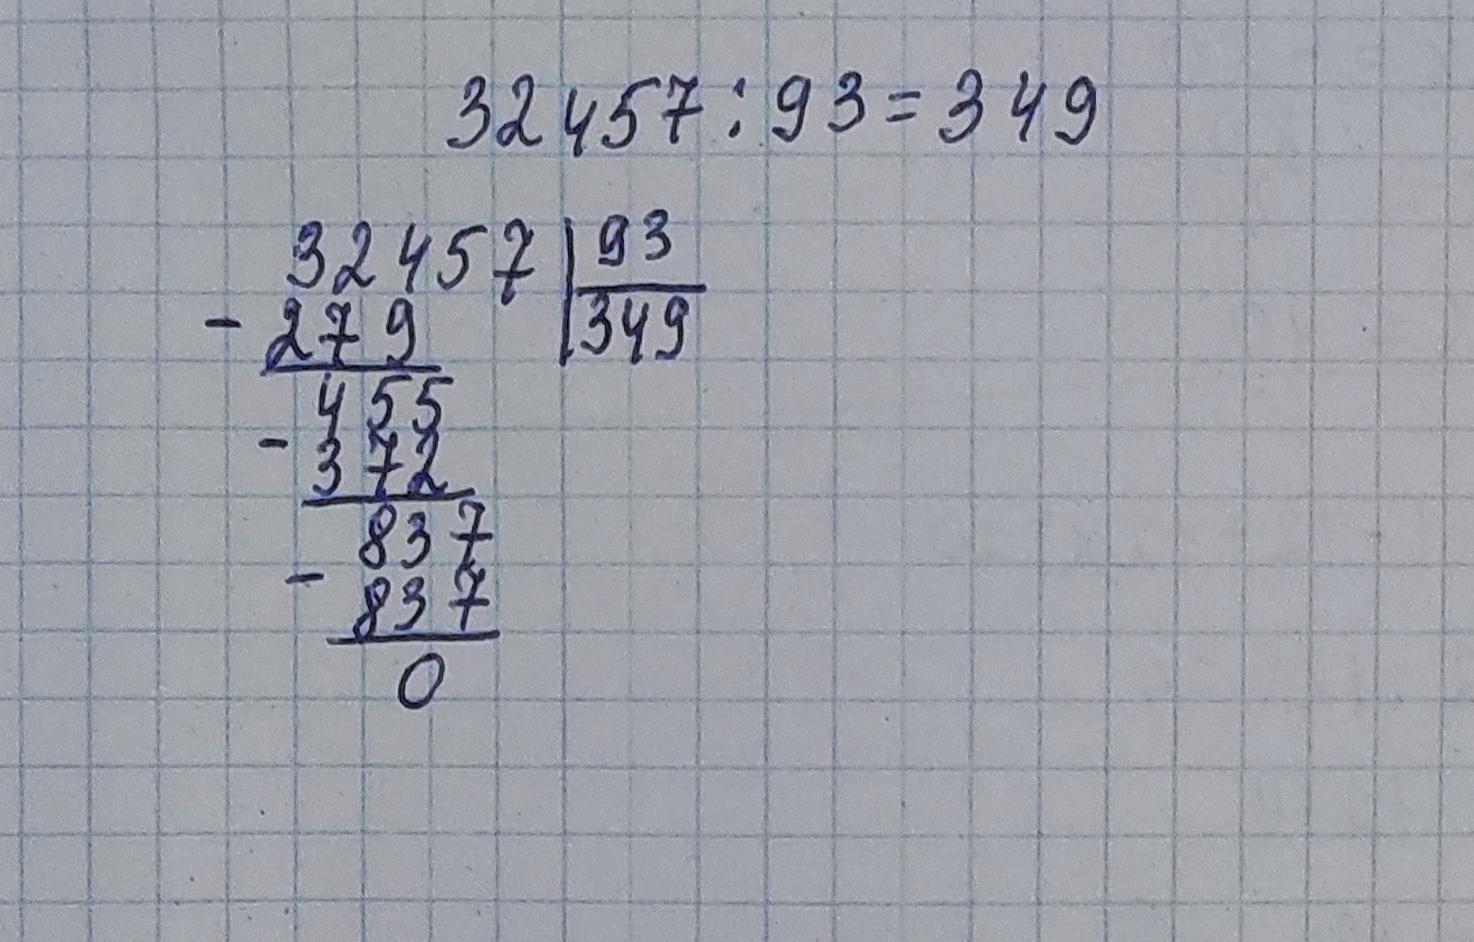 32457:93=349
32457 | 93
- 279 | 349
455
- 372
837
- 837
0